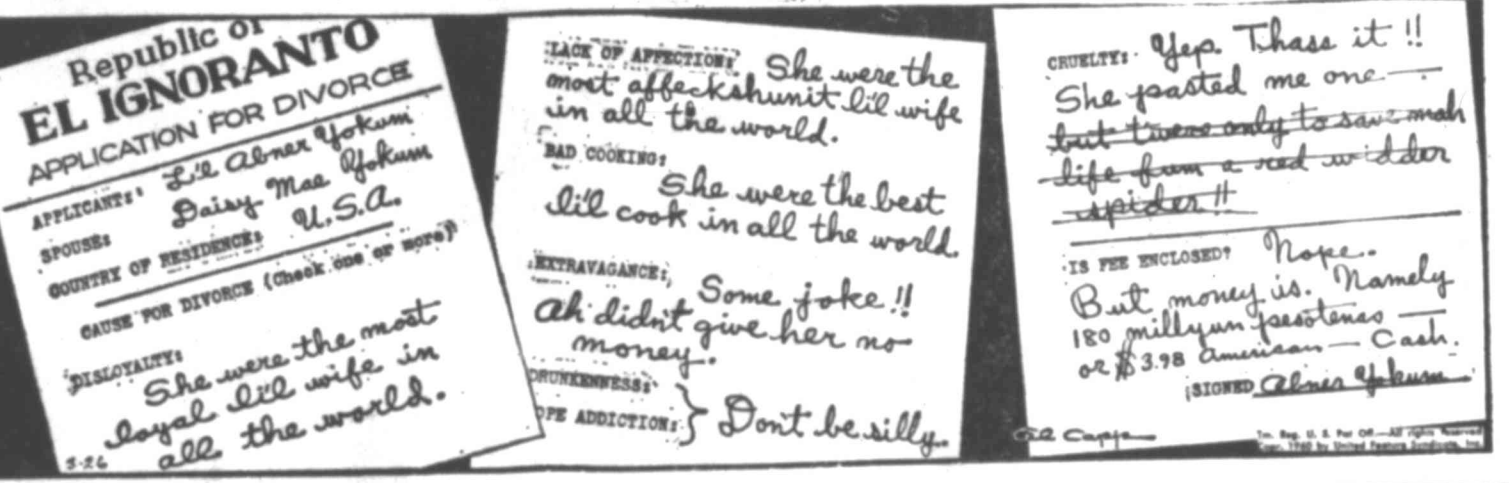 Republic of
EL IGNORANTO
APPLICATION FOR DIVORCE
APPLICANT: Li'l Abner Yokum
SPOUSE: Daisy Mae Yokum
COUNTRY OF RESIDENCE: U.S.A.
CAUSE FOR DIVORCE (Check one or more)
DISLOYALTY:
She were the most
loyal li'l wife in
all the world.
3-26
LACK OF AFFECTION: She were the
most affeckshunit li'l wife
in all the world.
BAD COOKING:
She were the best
li'l cook in all the world
EXTRAVAGANCE: Some joke!!
Ah didn't give her no
money.
DRUNKENNESS:
OPE ADDICTION: Don't be silly.
CRUELTY: Yep. Thass it!!
She pasted me one —
but t'were only to save mah
life fum a red widder
spider!!
IS FEE ENCLOSED? Nope.
But money is. Namely
180 millyun pesotenas —
or $3.98 American — Cash.
SIGNED Abner Yokum
Al Capp
Tm. Reg. U. S. Pat Off.—All rights reserved
Copr. 1960 by United Feature Syndicate, Inc.